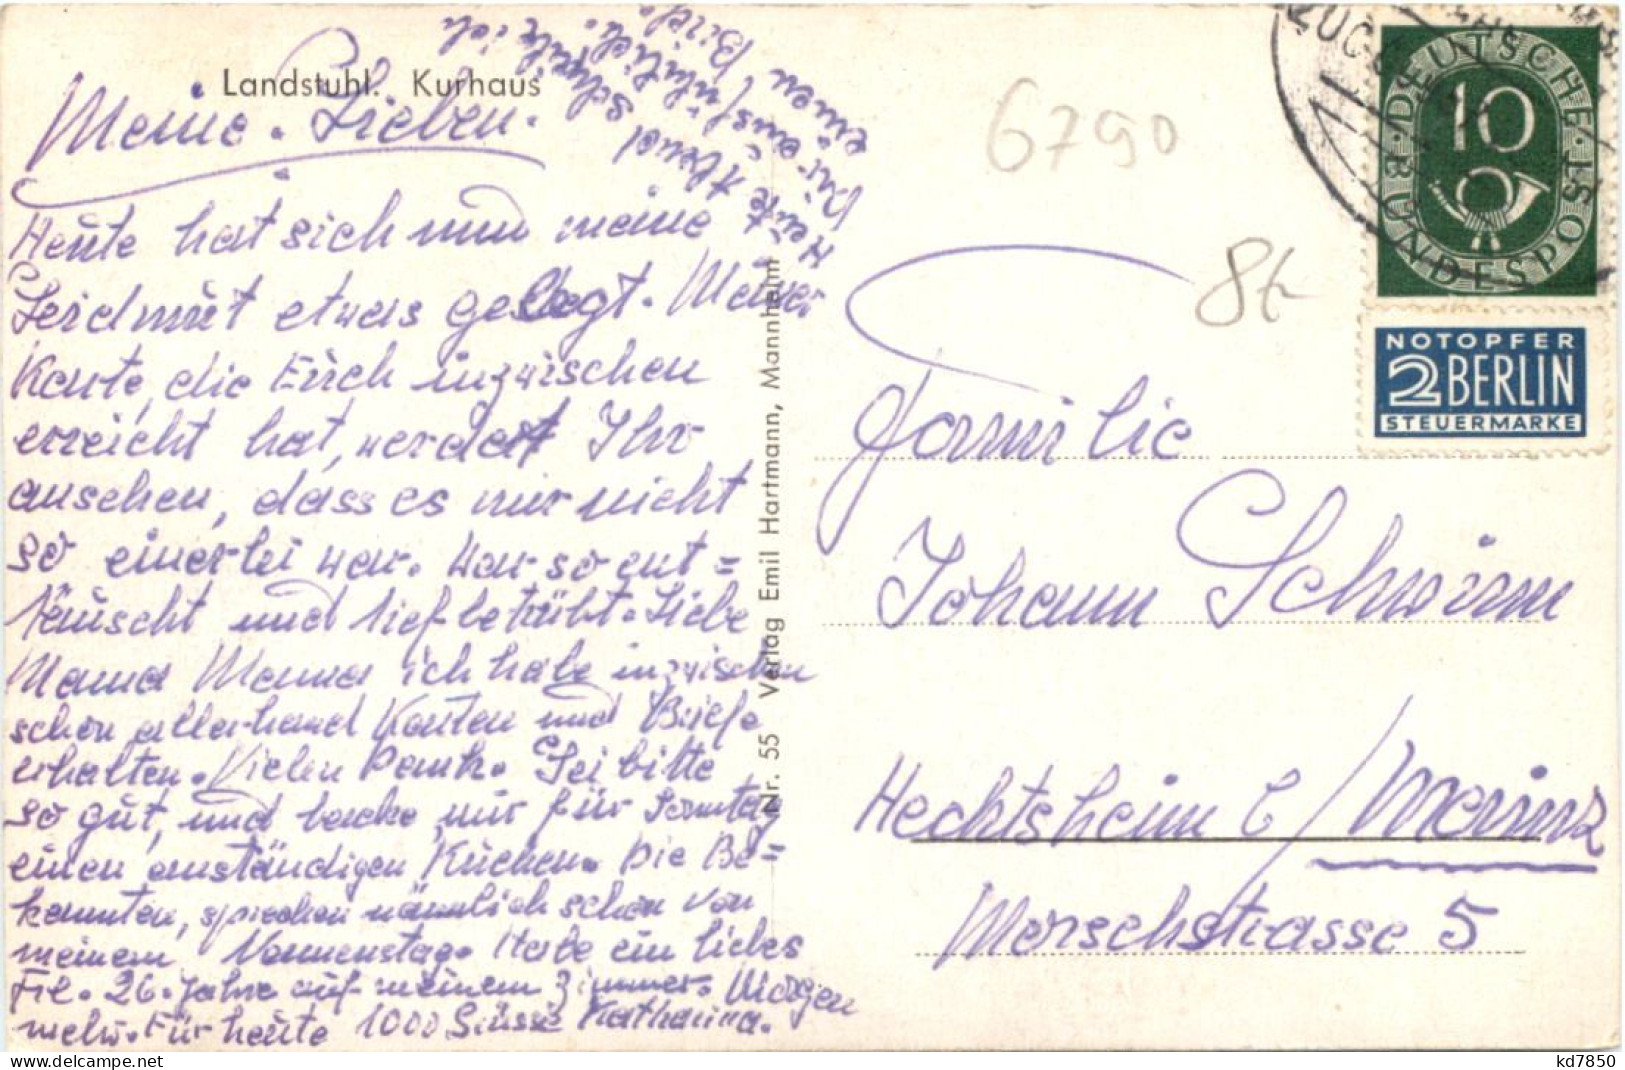 Landstuhl. Kurhaus
Meine Lieben.
Heute hat sich nun meine
Leidmut etwas gelegt. Meiner
Karte, die Euch inzwischen
erreicht hat, werdet Ihr
ansehen, dass es mir nicht
so einerlei war. War so ent=
täuscht und tief betrübt. Liebe
Mama ich habe inzwischen
schon allerhand Karten und Briefe
erhalten. Vielen Dank. Sei bitte
so gut, und backe mir für Sonntag
einen anständigen Kuchen. Die Be=
kannten, sprechen nämlich schon von
meinem Namenstag. Habe ein liebes
Frl. 26. Jahre auf meinem Zimmer. Morgen
mehr. Für heute 1000 Küsse Katharina.
Heute Abend schreibe ich
Dir ausführlich.
einen Brief.
Nr. 55 Verlag Emil Hartmann, Mannheim
6790
8t
DEUTSCHE BUNDESPOST
10
NOTOPFER
2 BERLIN
STEUERMARKE
Familie
Johann Schwinn
Hechtsheim b/Mainz
Morschstrasse 5
kd7850